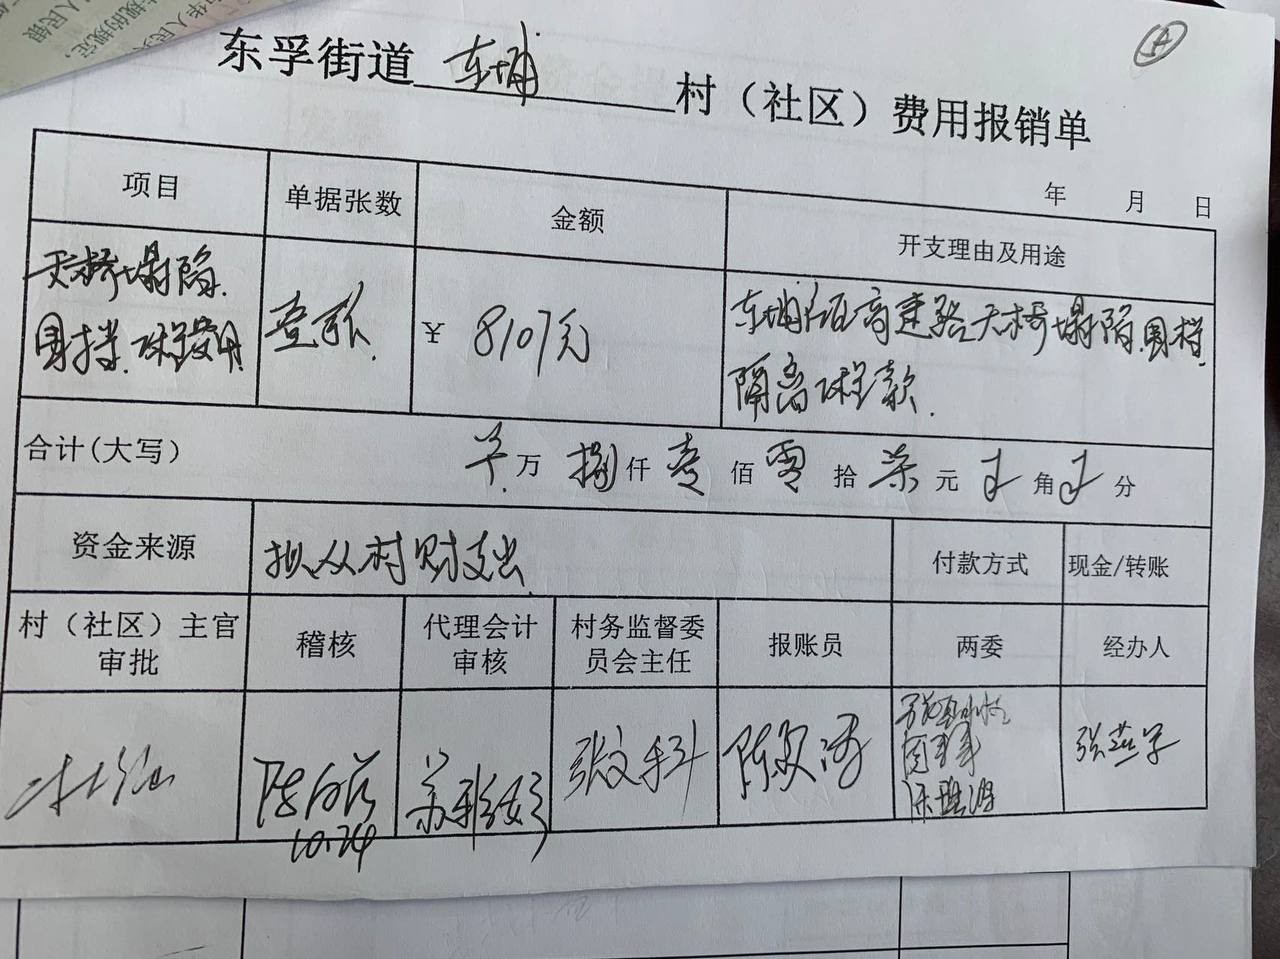 东孚街道 东埔 村（社区）费用报销单
年 月 日
项目 单据张数 金额 开支理由及用途
天桥塌陷.
围挡. 工程费用
壹张
¥ 8107元
东埔 高速路天桥塌陷.围挡.
隔离工程款.
合计(大写) 万 捌 仟 壹 佰 零 拾 柒 元 角 分
资金来源 拟从村财支出 付款方式 现金/转账
村（社区）主官
审批
稽核
代理会计
审核
村务监督委
员会主任
报账员 两委 经办人
张文
10.24